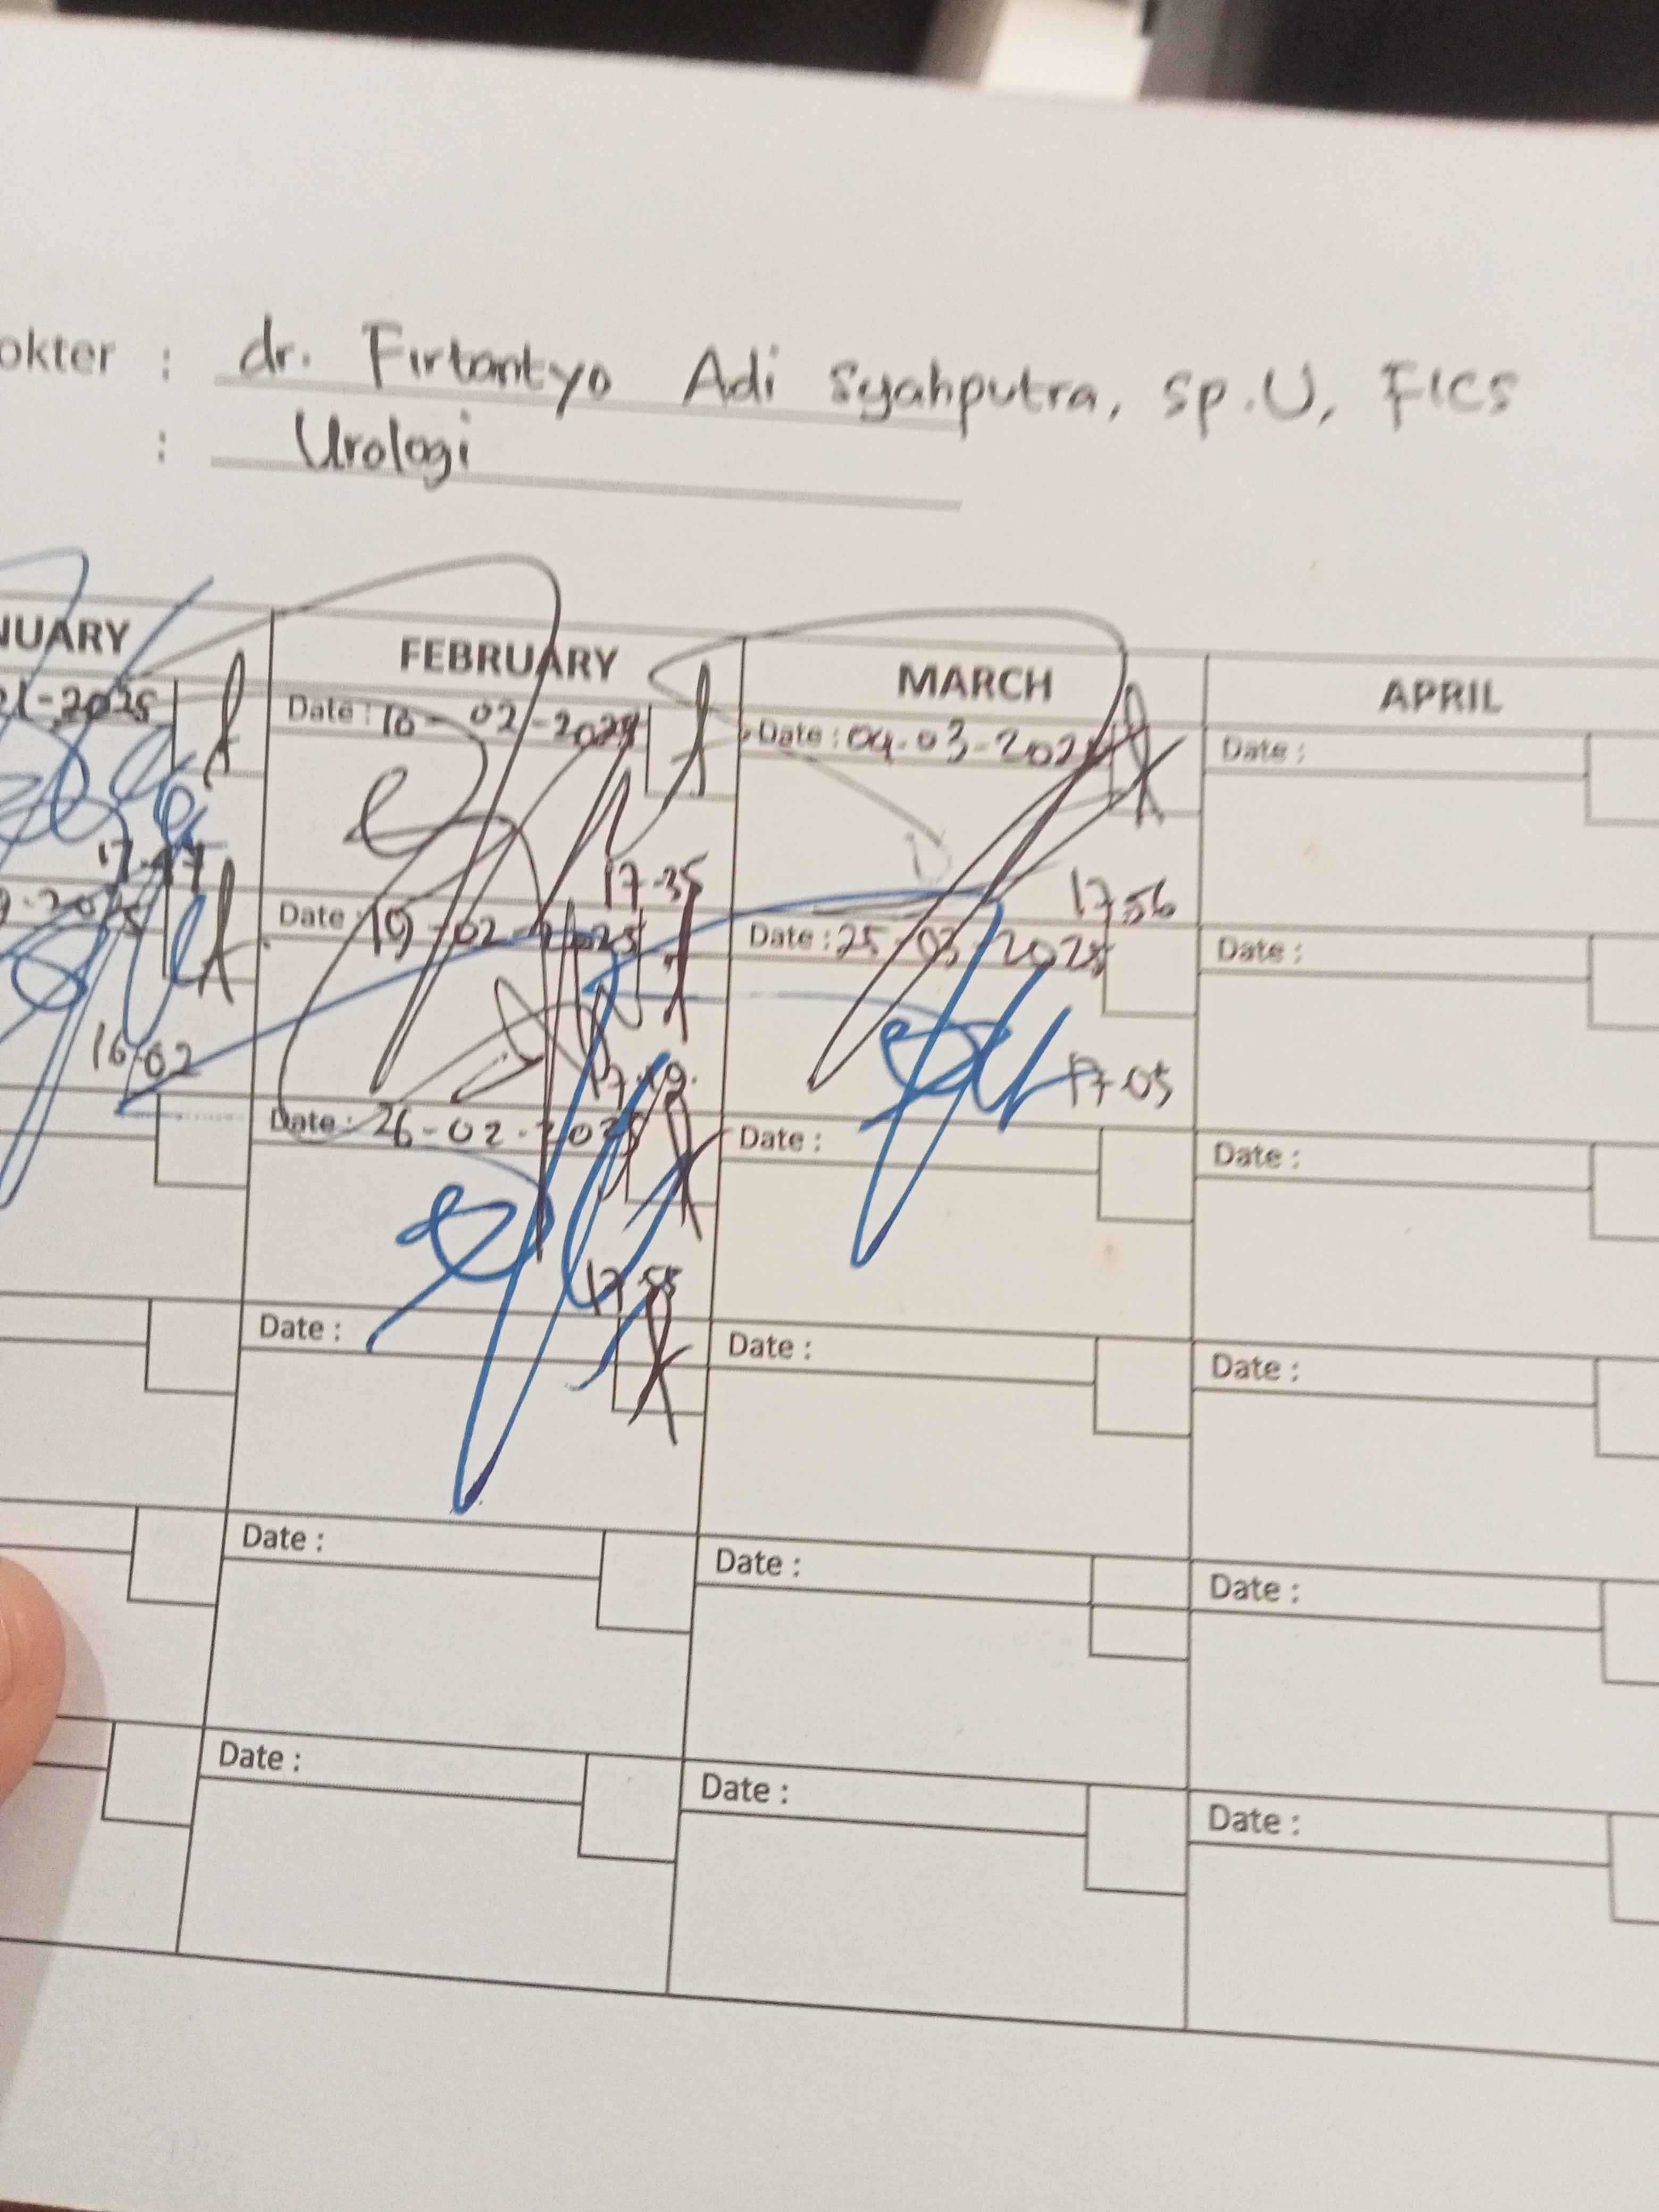 okter : dr. Firtantyo Adi Syahputra, Sp.U, FICS
: Urologi
NUARY FEBRUARY MARCH APRIL
-2025 Date : 10-02-2025 Date : 04-03-2025 Date :
17-35 17.56
Date : 19-02-2025 Date : 25-03-2025 Date :
16-02 17-05
Date : 26-02-2025 Date : Date :
17.55
Date : Date : Date :
Date : Date : Date :
Date : Date : Date :